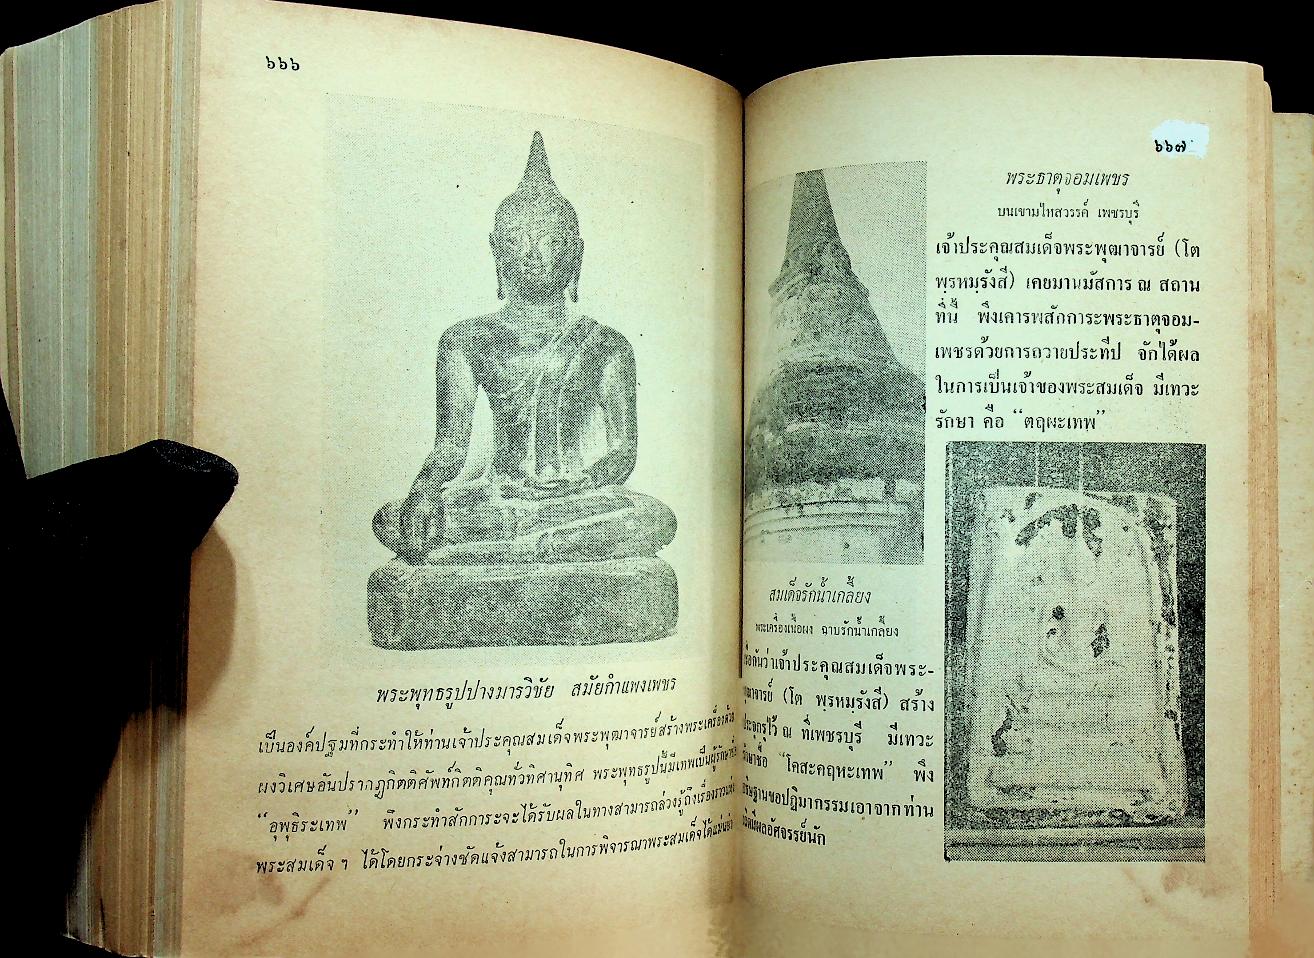 ๖๖๖
พระพุทธรูปปางมารวิชัย สมัยกำแพงเพชร
เป็นองค์ปฐมที่กระทำให้ท่านเจ้าประคุณสมเด็จพระพุฒาจารย์สร้างพระเครื่องด้วย
ผงวิเศษอันปรากฏกิตติศัพท์กิตติคุณทั่วทิศานุทิศ พระพุทธรูปนี้มีเทพเป็นผู้รักษาชื่อ
“อุพุธิระเทพ” พึงกระทำสักการะจะได้รับผลในทางสามารถล่วงรู้ถึงเรื่องราวแห่ง
พระสมเด็จ ๆ ได้โดยกระจ่างชัดแจ้งสามารถในการพิจารณาพระสมเด็จได้แม่นยำ
๖๖๗
พระธาตุจอมเพชร
บนเขามไหสวรรค์ เพชรบุรี
เจ้าประคุณสมเด็จพระพุฒาจารย์ (โต
พฺรหฺมรังสี) เคยมานมัสการ ณ สถาน
ที่นี้ พึงเคารพสักการะพระธาตุจอม-
เพชรด้วยการถวายประทีป จักได้ผล
ในการเป็นเจ้าของพระสมเด็จ มีเทวะ
รักษา คือ “ตฤผะเทพ”
สมเด็จรักน้ำเกลี้ยง
พระเครื่องเนื้อผง ฉาบรักน้ำเกลี้ยง
เชื่อกันว่าเจ้าประคุณสมเด็จพระ-
พุฒาจารย์ (โต พฺรหฺมรังสี) สร้าง
ประจุกรุไว้ ณ ที่เพชรบุรี มีเทวะ
รักษาชื่อ “โคสะคฤหะเทพ” พึง
อธิษฐานขอปฏิมากรรมเอาจากท่าน
มีผลอัศจรรย์นัก